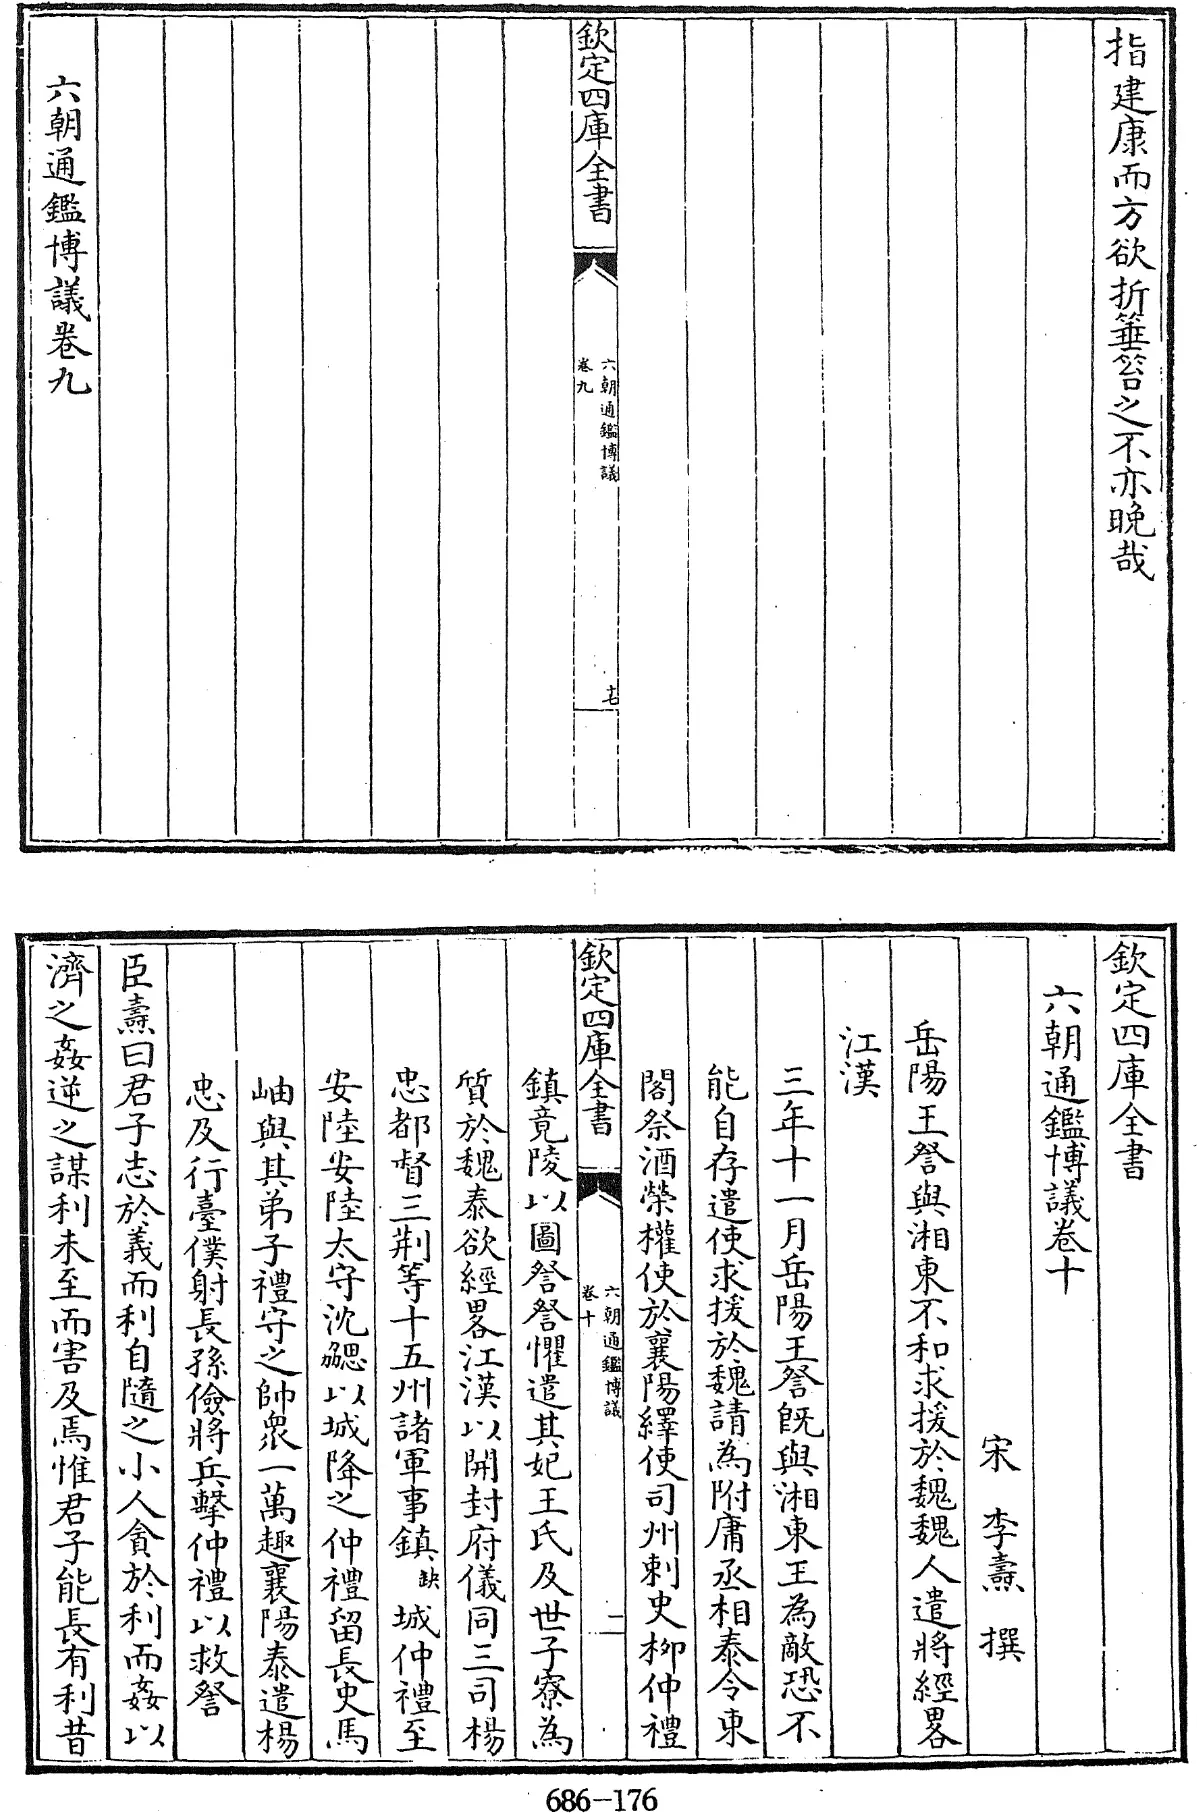 指建康而方欲折箠笞之不亦晚哉
欽定四庫全書
六朝通鑑博議
卷九
十七
六朝通鑑博議卷九
欽定四庫全書
六朝通鑑博議卷十
宋 李燾 撰
岳陽王詧與湘東不和求援於魏魏人遣將經畧
江漢
三年十一月岳陽王詧既與湘東王為敵恐不
能自存遣使求援於魏請為附庸丞相泰令東
閣祭酒榮權使於襄陽繹使司州刺史柳仲禮
欽定四庫全書
六朝通鑑博議
卷十
一
鎮竟陵以圖詧詧懼遣其妃王氏及世子寮為
質於魏泰欲經畧江漢以開封府儀同三司楊
忠都督三荆等十五州諸軍事鎮缺城仲禮至
安陸安陸太守沈勰以城降之仲禮留長史馬
岫與其弟子禮守之帥衆一萬趣襄陽泰遣楊
忠及行臺僕射長孫儉將兵擊仲禮以救詧
臣燾曰君子志於義而利自隨之小人貪於利而姦以
濟之姦逆之謀利未至而害及焉惟君子能長有利昔
686-176